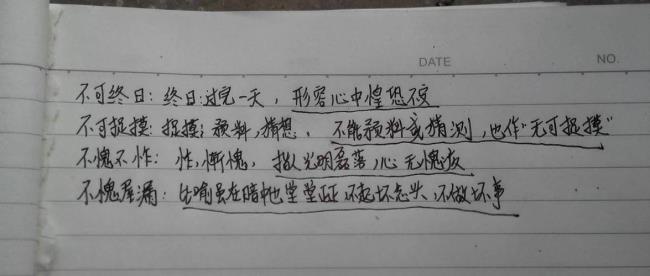 DATE NO.
不可终日：终日：过完一天，形容心中惶恐不安
不可捉摸：捉摸：预料，猜想。不能预料或猜测，也作“无可捉摸”
不愧不怍：怍，惭愧，指人光明磊落，心无愧疚
不愧屋漏：比喻虽在暗中也堂堂正正，不起坏念头，不做坏事